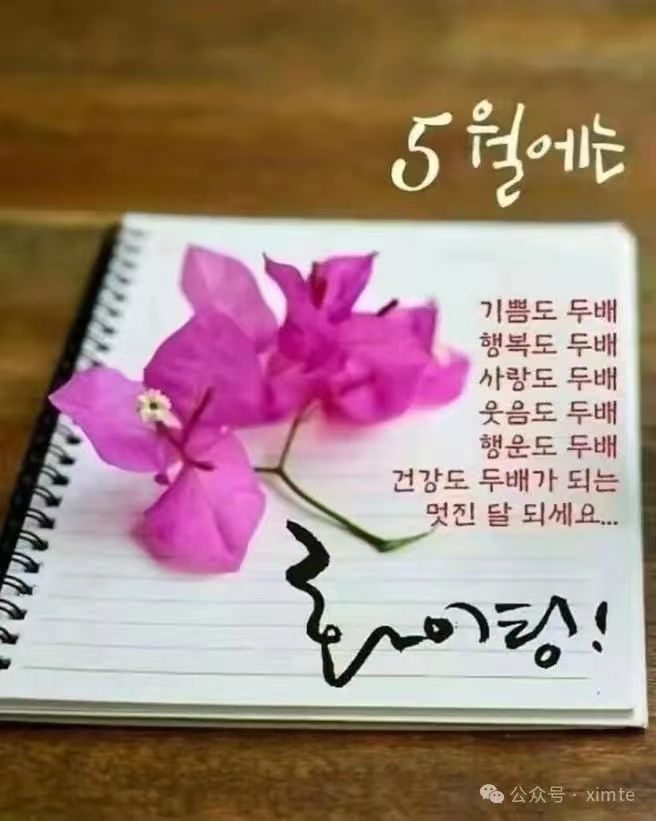 5월에는
기쁨도 두배
행복도 두배
사랑도 두배
웃음도 두배
행운도 두배
건강도 두배가 되는
멋진 달 되세요...
화이팅!
公众号 · ximte